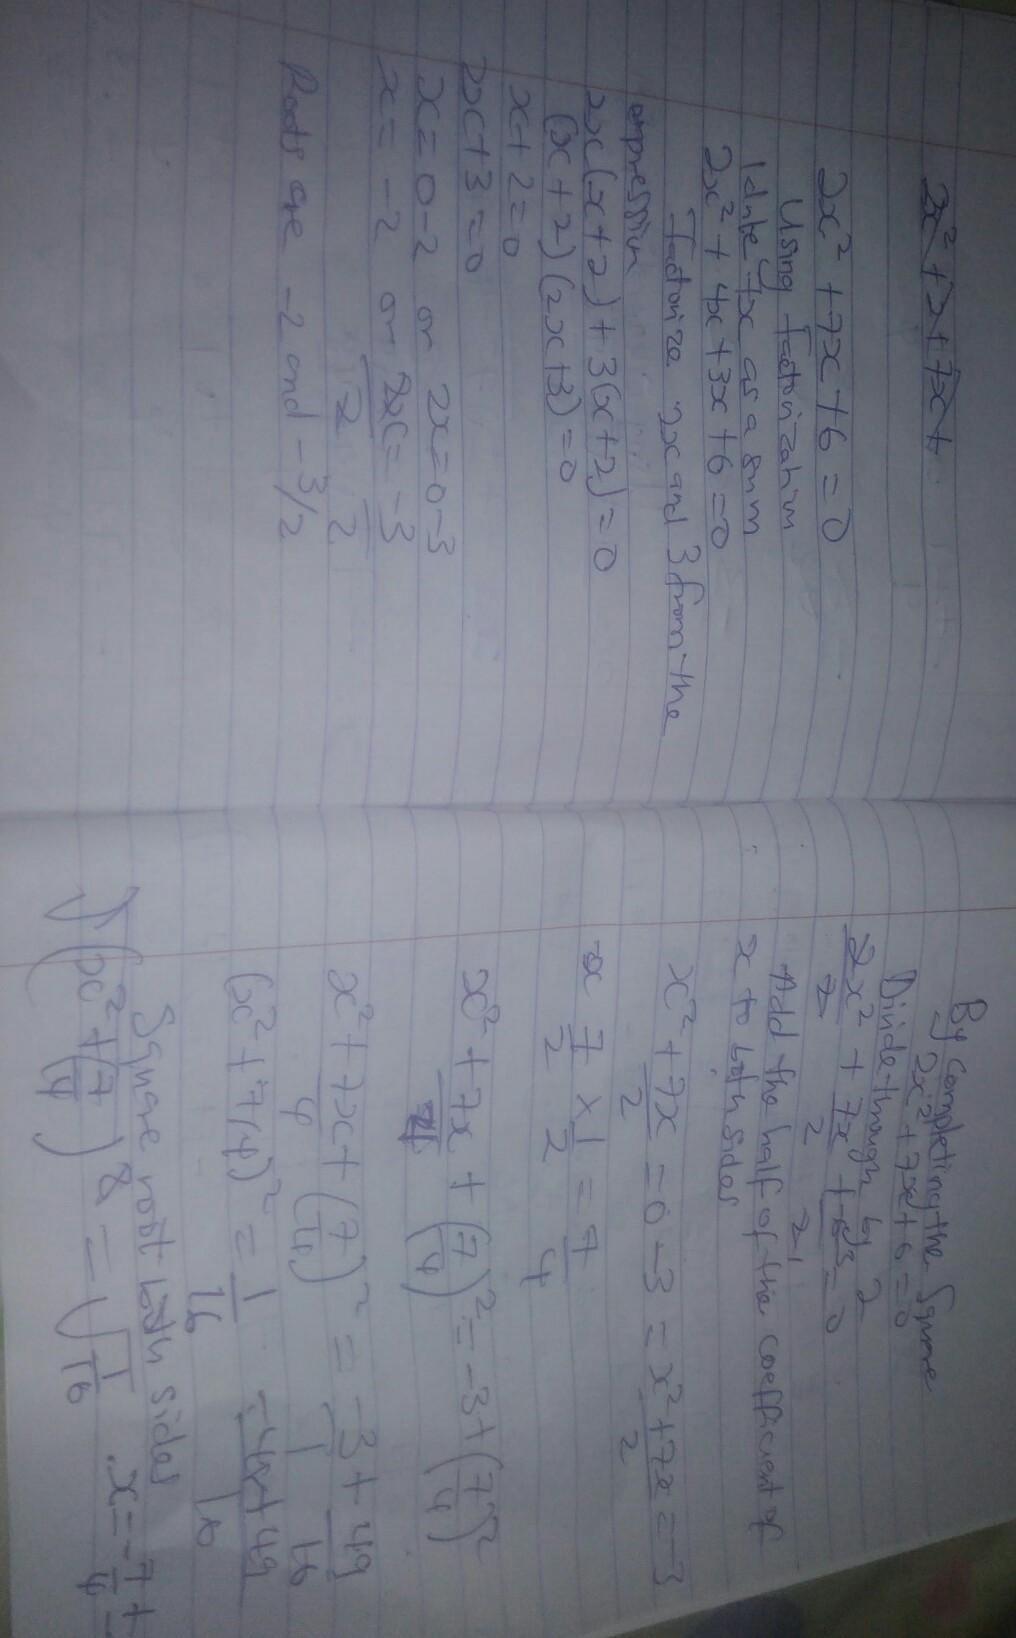 2x² + 7x +
2x² + 7x + 6 = 0
Using factorization
7x as a sum
2x² + 4x + 3x + 6 = 0
factorize 2x and 3 from the
expression
2x(x+2) + 3(x+2) = 0
(x+2)(2x+3) = 0
x+2=0
2x+3=0
x = 0-2 or 2x = 0-3
x = -2 or 2x/2 = -3/2
Roots are -2 and -3/2
By completing the Square
2x² + 7x + 6 = 0
Divide through by 2
2x²/2 + 7x/2 + 6³/2₁ = 0
Add the half of the coefficient of
x to both sides
x² + 7x/2 = 0 - 3 = x² + 7x/2 = -3
7/2 × 1/2 = 7/4
x² + 7x + (7/4)² = -3 + (7/4)²
x² + 7x/4 + (7/4)² = -3/1 + 49/16
(x² + 7/4)² = 1/16 -48+49/16
Square root both sides
√(x² + 7/4) = √1/16 x = -7/4 ±